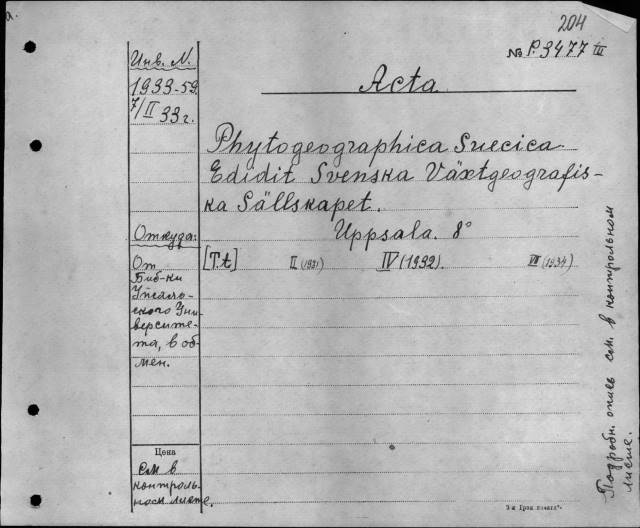 204
№ P.3477 III
Acta
Phytogeographica Suecica
Edidit Svenska Växtgeografis-
ka Sällskapet.
Uppsala. 8°
[T.t] II (1931) IV (1932). VII (1934)
Инв. N.
1933-59.
7/II 33 г.
Откуда:
От
Биб-ки
Упсаль-
ского Уни-
версите-
та, в об-
мен.
Цена
См в
контроль-
ном листе.
Подробн. опись см. в контрольном
листе.